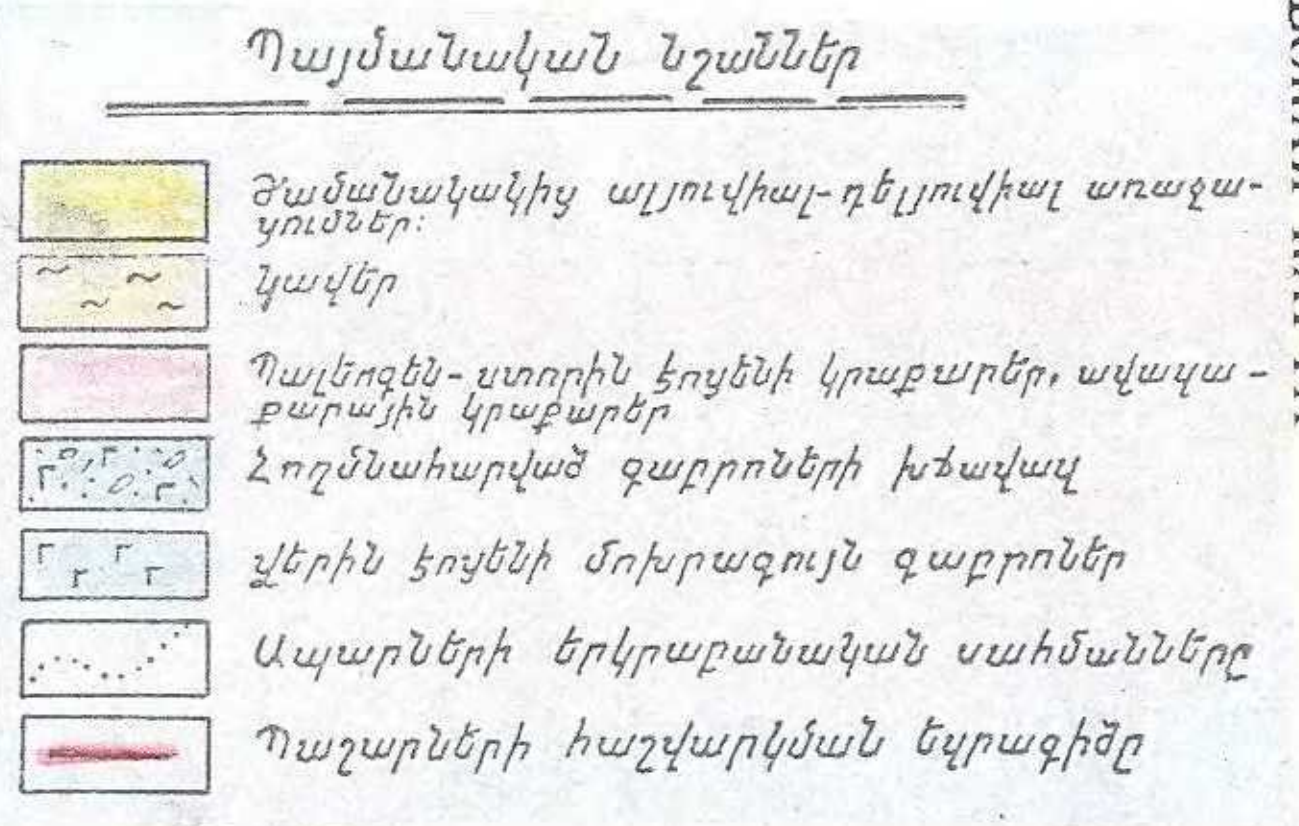 Պայմանական նշաններ
Ժամանակակից ալյուվիալ-դելյուվիալ առաջա-
ցումներ:
Կավեր
Պալեոգեն-ստորին էոցենի կրաքարեր, ավազա-
քարային կրաքարեր
Հողմնահարված գաբրոների խճավազ
Վերին էոցենի մոխրագույն գաբրոներ
Ապարների երկրաբանական սահմանները
Պաշարների հաշվարկման եզրագիծը